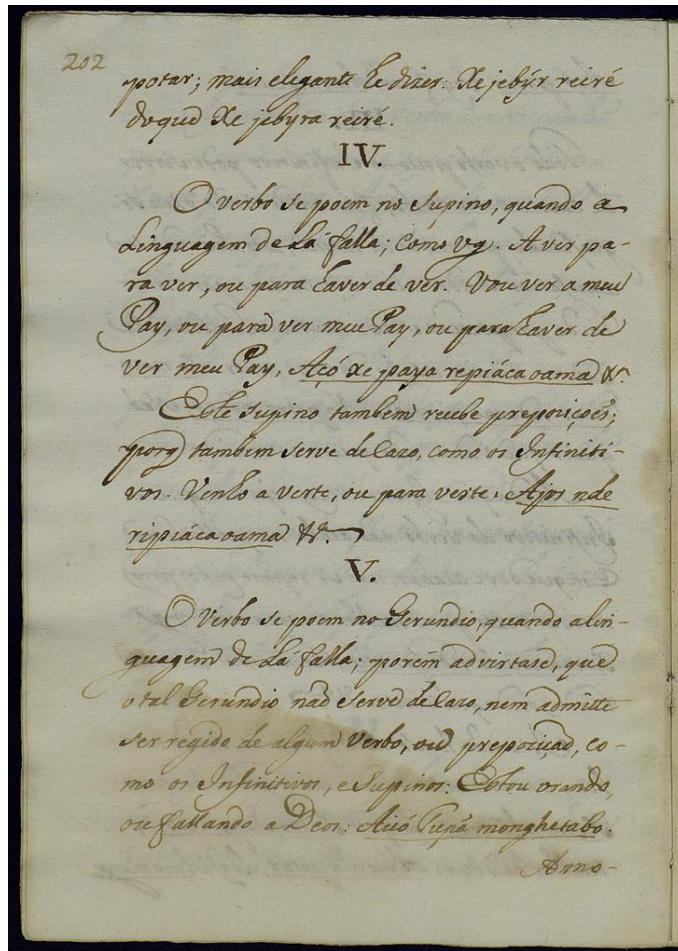 202
potar; mais elegante he dizer: Xe jebÿr reiré
doque Xe jebyra reiré.
IV.
O verbo se poem no Supino, quando a
Linguagem de Lá falla; como vg. A ver pa-
ra ver, ou para haver de ver. Vou ver a meu
Pay, ou para ver meu Pay, ou para haver de
ver meu Pay, Açó xe paya repiáca oama &.
Este supino tambem recebe prepoiçoẽs;
porq tambem serve de Cazo, como os Infiniti-
vos. Venho a verte, ou para verte: Ajos nde
ripiáca oama &.
V.
O Verbo se poem no Gerundio, quando a lin-
guagem de Lá falla; porém advirtase, que
o tal Gerundio naõ serve de Cazo, nem admitte
ser regido de algum verbo, ou prepoziçaõ, co-
mo os Infinitivos, e Supinos: Estou orando,
ou fallando a Deos: Aicó Tupã monghetabo.
Amo-